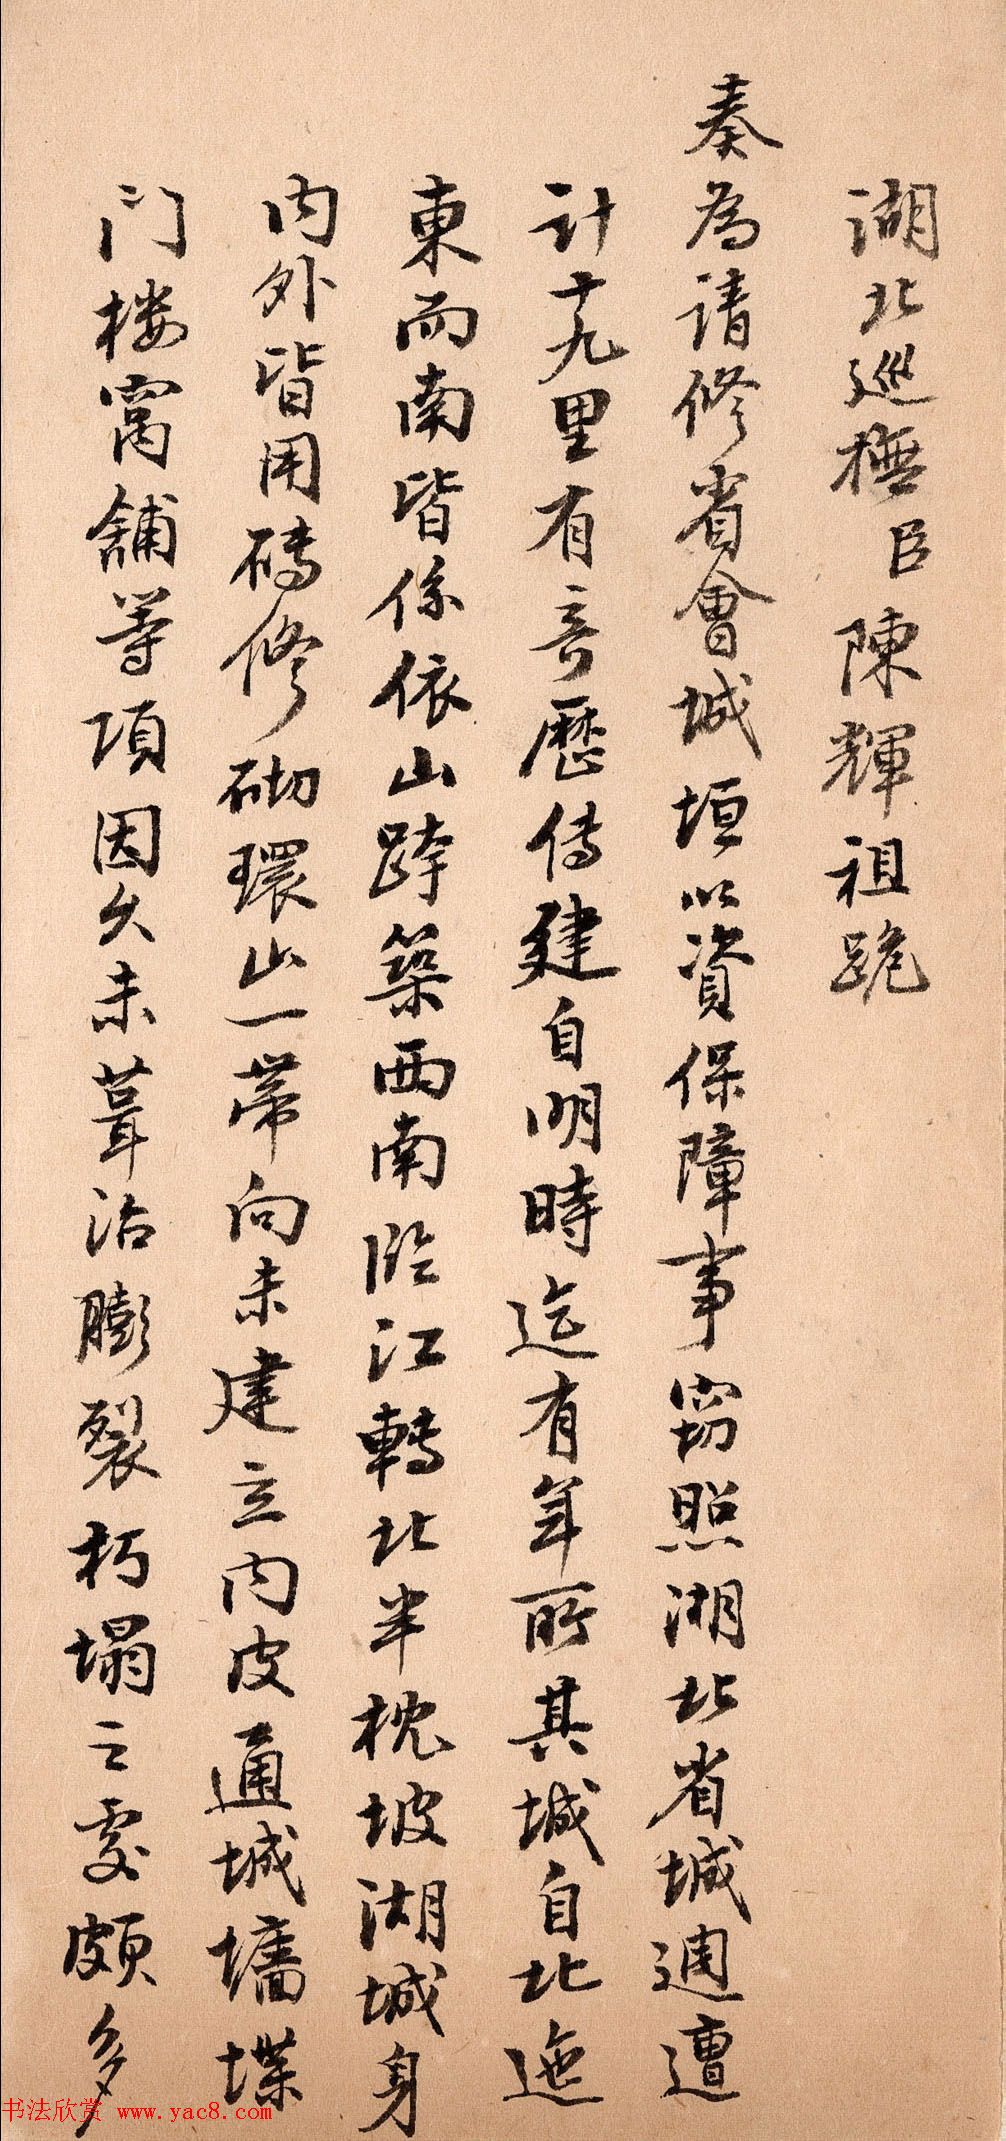 湖北巡撫臣陳輝祖跪
奏為請修省會城垣以資保障事竊照湖北省城週遭
計十九里有奇歷傳建自明時迄有年所其城自北迤
東而南皆係依山跨築西南臨江轉北半枕坡湖城身
內外皆用磚修砌環山一帶向未建立內皮通城墻堞
門楼窩舖等項因久未葺沽膨裂朽塌之處頗多
书法欣赏 www.yac8.com